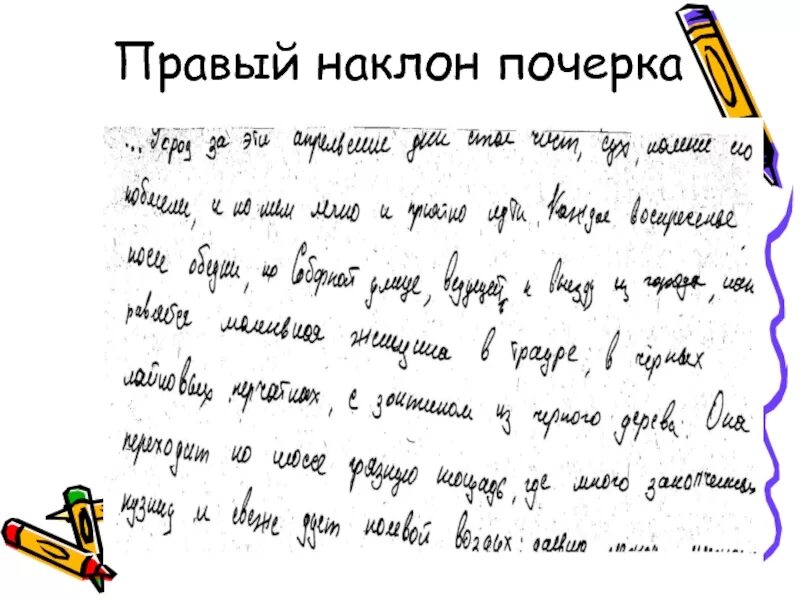 Правый наклон почерка
...Город за эти апрельские дни стал чист, сух, камни его
побелели, и по ним легко и приятно идти. Каждое воскресенье
после обедни, по Соборной улице, ведущей к выезду из города, нап
равляется маленькая женщина в трауре, в чёрных
лайковых перчатках, с зонтиком из черного дерева. Она
переходит по шоссе грязную площадь, где много закопченных
кузниц и свеже дует полевой воздух: